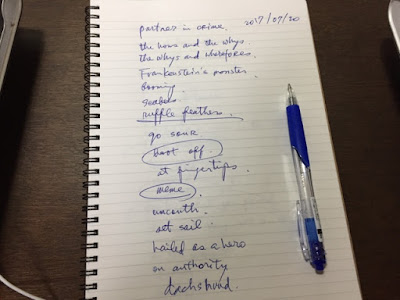 partner in crime. 2017/09/20
the hows and the whys
the whys and wherefores.
Frankenstein's monster.
booming.
seabed
ruffle feathers.
go sour
boot off.
at fingertips.
meme.
uncouth.
set sail.
hailed as a hero
on authority
dachshund.